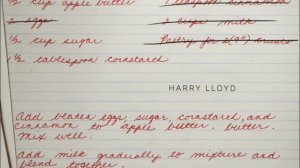 ½ cup apple butter
1 teaspoon cinnamon
2 eggs
2 cups milk
½ cup sugar
Pastry for 2(9") crusts
1½ tablespoon cornstarch
HARRY LLOYD
Add beaten eggs, sugar, cornstarch, and
cinnamon to apple butter. butter.
Mix well.
Add milk gradually to mixture and
blend together.